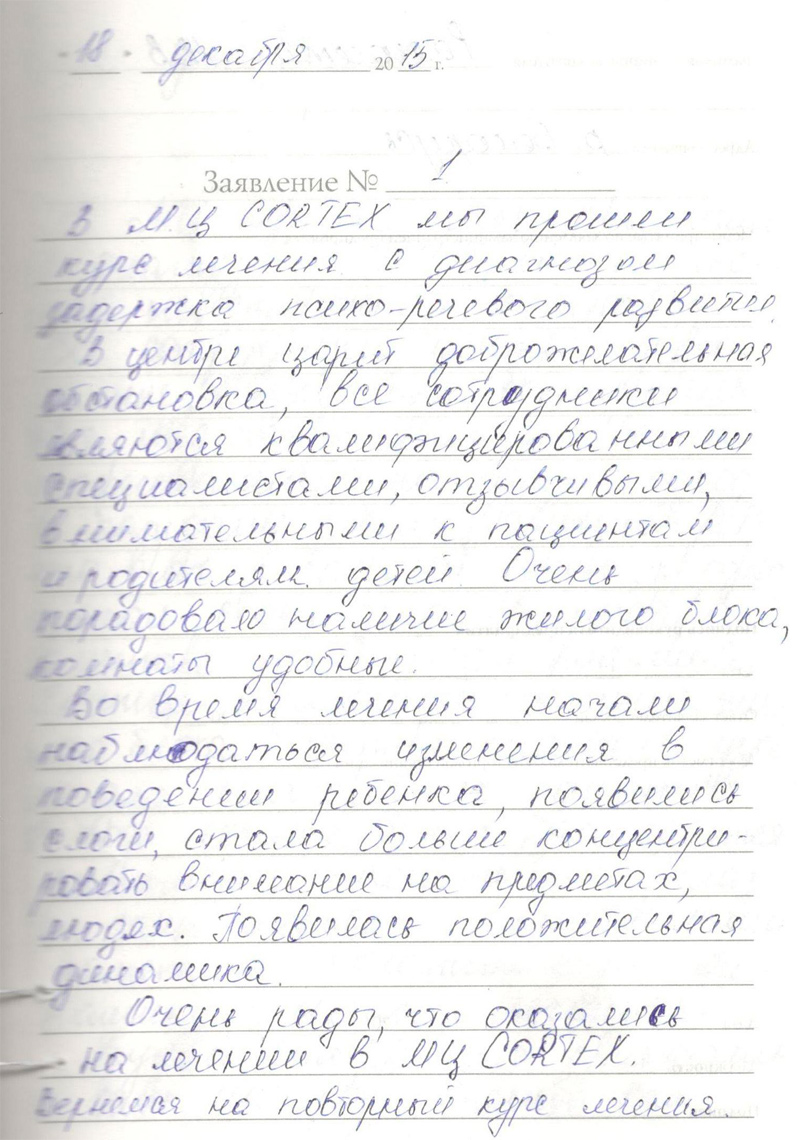 18 декабря 2015 г.
Заявление № 1
В МЦ CORTEX мы прошли
курс лечения с диагнозом
задержка психо-речевого развития.
В центре царит доброжелательная
обстановка, все сотрудники
являются квалифицированными
специалистами, отзывчивыми,
внимательными к пациентам
и родителям детей. Очень
порадовало наличие жилого блока,
комнаты удобные.
Во время лечения начали
наблюдаться изменения в
поведении ребенка, появились
слоги, стала больше концентри-
ровать внимание на предметах,
людях. Появилась положительная
динамика.
Очень рады, что оказались
на лечении в МЦ CORTEX.
Вернемся на повторный курс лечения.